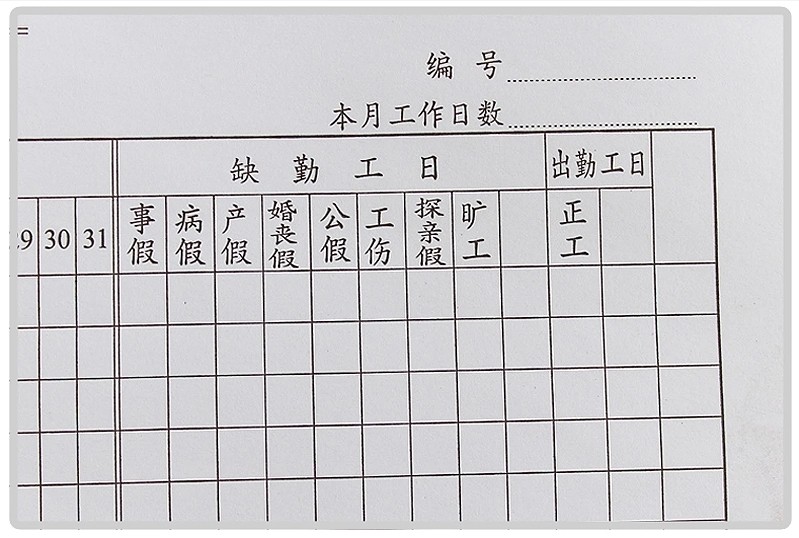 编 号
本月工作日数
缺 勤 工 日 出勤工日
29 30 31 事假 病假 产假 婚丧假 公假 工伤 探亲假 旷工 正工